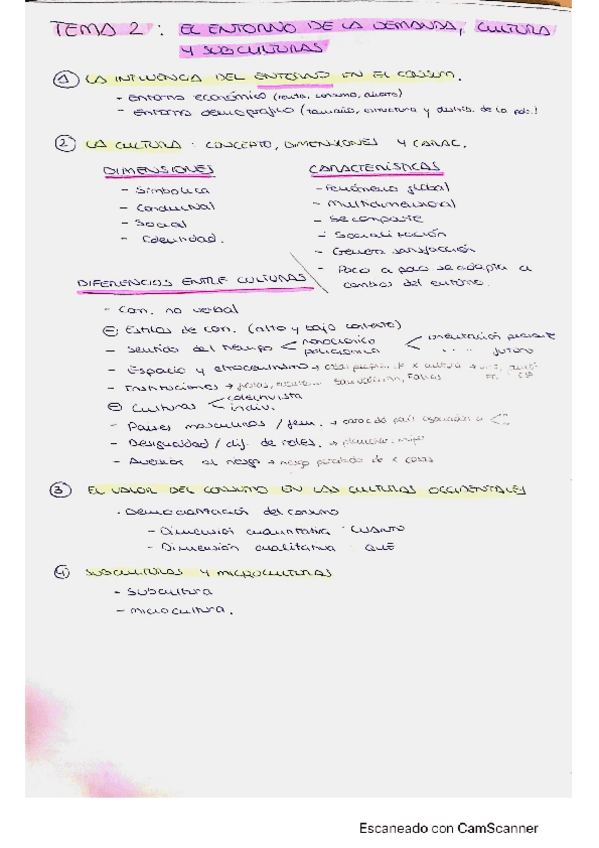 TEMA 2: EL ENTORNO DE LA DEMANDA, CULTURA
Y SUBCULTURAS
1 LA INFLUENCIA DEL ENTORNO EN EL CONSUM.
- Entorno económico (renta, consumo, ahorro)
- Entorno demográfico (tamaño, estructura y distrib. de la pob.)
2 LA CULTURA: CONCEPTO, DIMENSIONES Y CARAC.
DIMENSIONES
- Simbólica
- Conductual
- Social
- Identidad.
CARACTERÍSTICAS
- Fenómeno global
- Multidimensional
- Se comparte
- Socialización
- Genera satisfacción
- Poco a poco se adapta a
cambios del entorno.
DIFERENCIAS ENTRE CULTURAS
- Com. no verbal
Estilos de com. (alto y bajo contexto)
- Sentido del tiempo < monocrónico < orientación presente
policrónica " " futuro
- Espacio y etnocentrismo →
- Instituciones →
Culturas < colectivista
indiv.
- Países masculinos / fem. →
- Desigualdad / dif. de roles. →
- Aversión al riesgo → riesgo percibido de x cosas
3 EL VALOR DEL CONSUMO EN LAS CULTURAS OCCIDENTALES
- Democratización del consumo
- Dimensión cuantitativa: CUANTO
- Dimensión cualitativa: QUÉ
4 SUBCULTURAS Y MICROCULTURAS
- Subcultura
- Microcultura.
Escaneado con CamScanner